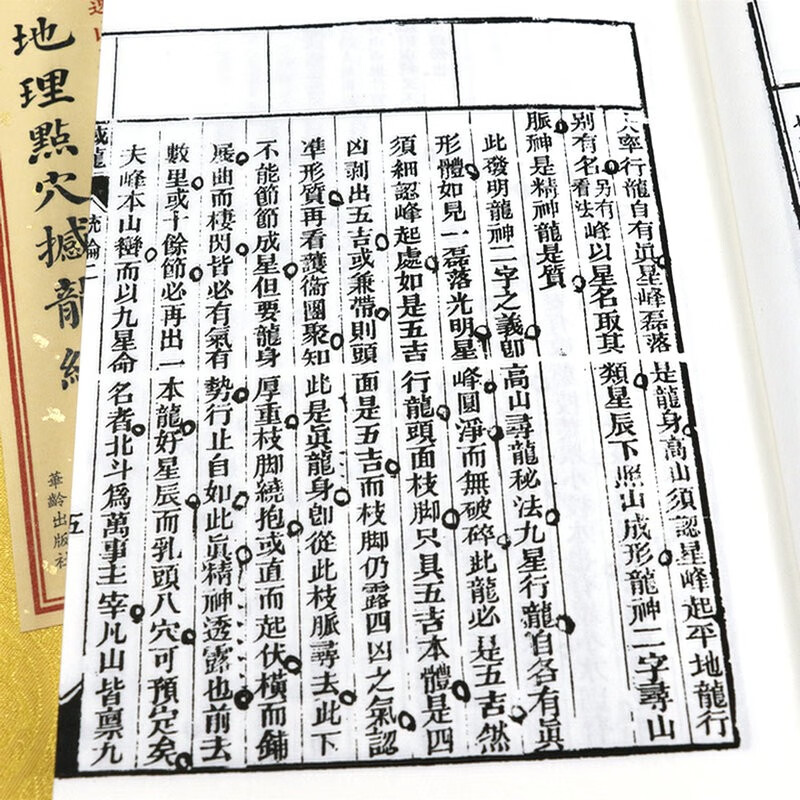 大率行龍自有眞星峰磊落是龍身高山須認星峰起平地龍行
别有名另有看法峰以星名取其類星辰下照山成形龍神二字尋山
脈神是精神龍是質
此發明龍神二字之義卽高山尋龍秘法九星行龍自各有眞
形體如見一磊落光明星峰圓淨而無破碎此龍必是五吉然
須細認峰起處如是五吉行龍頭面枝脚只具五吉本體是四
凶剥出五吉或兼帶則頭面是五吉而枝脚仍露四凶之氣認
準形質再看護衛團聚知此是眞龍身卽從此枝脈尋去此下
不能節節成星但要龍身厚重枝脚繞抱或直而起伏橫而鋪
展曲而棲閃皆必有氣有勢行止自如此眞精神透露也前去
數里或十餘節必再出一本龍好星辰而乳頭八穴可預定矣
夫峰本山巒而以九星命名者北斗爲萬事主宰凡山皆禀九
撼龍 統論二 五
地理點穴撼龍經
華齡出版社